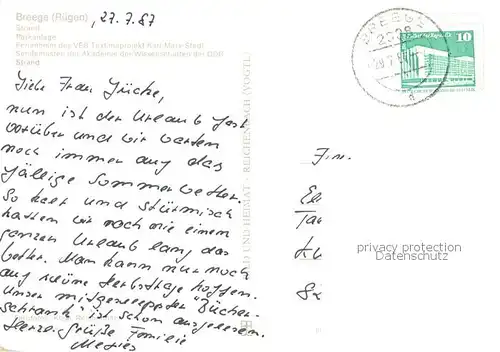 Breege (Rügen)
27.7.87
Strand
Parkanlage
Ferienheim des VEB Textimaprojekt Karl-Marx-Stadt
Sendemasten der Akademie der Wissenschaften der DDR
Strand
Liebe Frau Jücke,
nun ist der Urlaub fast
vorüber und wir warten
noch immer auf das
fällige Sommerwetter.
So kalt und stürmisch
hatten wir noch nie einen
ganzen Urlaub lang das
Wetter. Man kann nur noch
auf schöne Herbsttage hoffen.
Unser mitgeschleppter "Bücher-
schrank" ist schon ausgelesen.
Herzl. Grüße Familie
BILD UND HEIMAT · REICHENBACH (VOGTL)
BREEGE
10
Fam.
privacy protection
Datenschutz